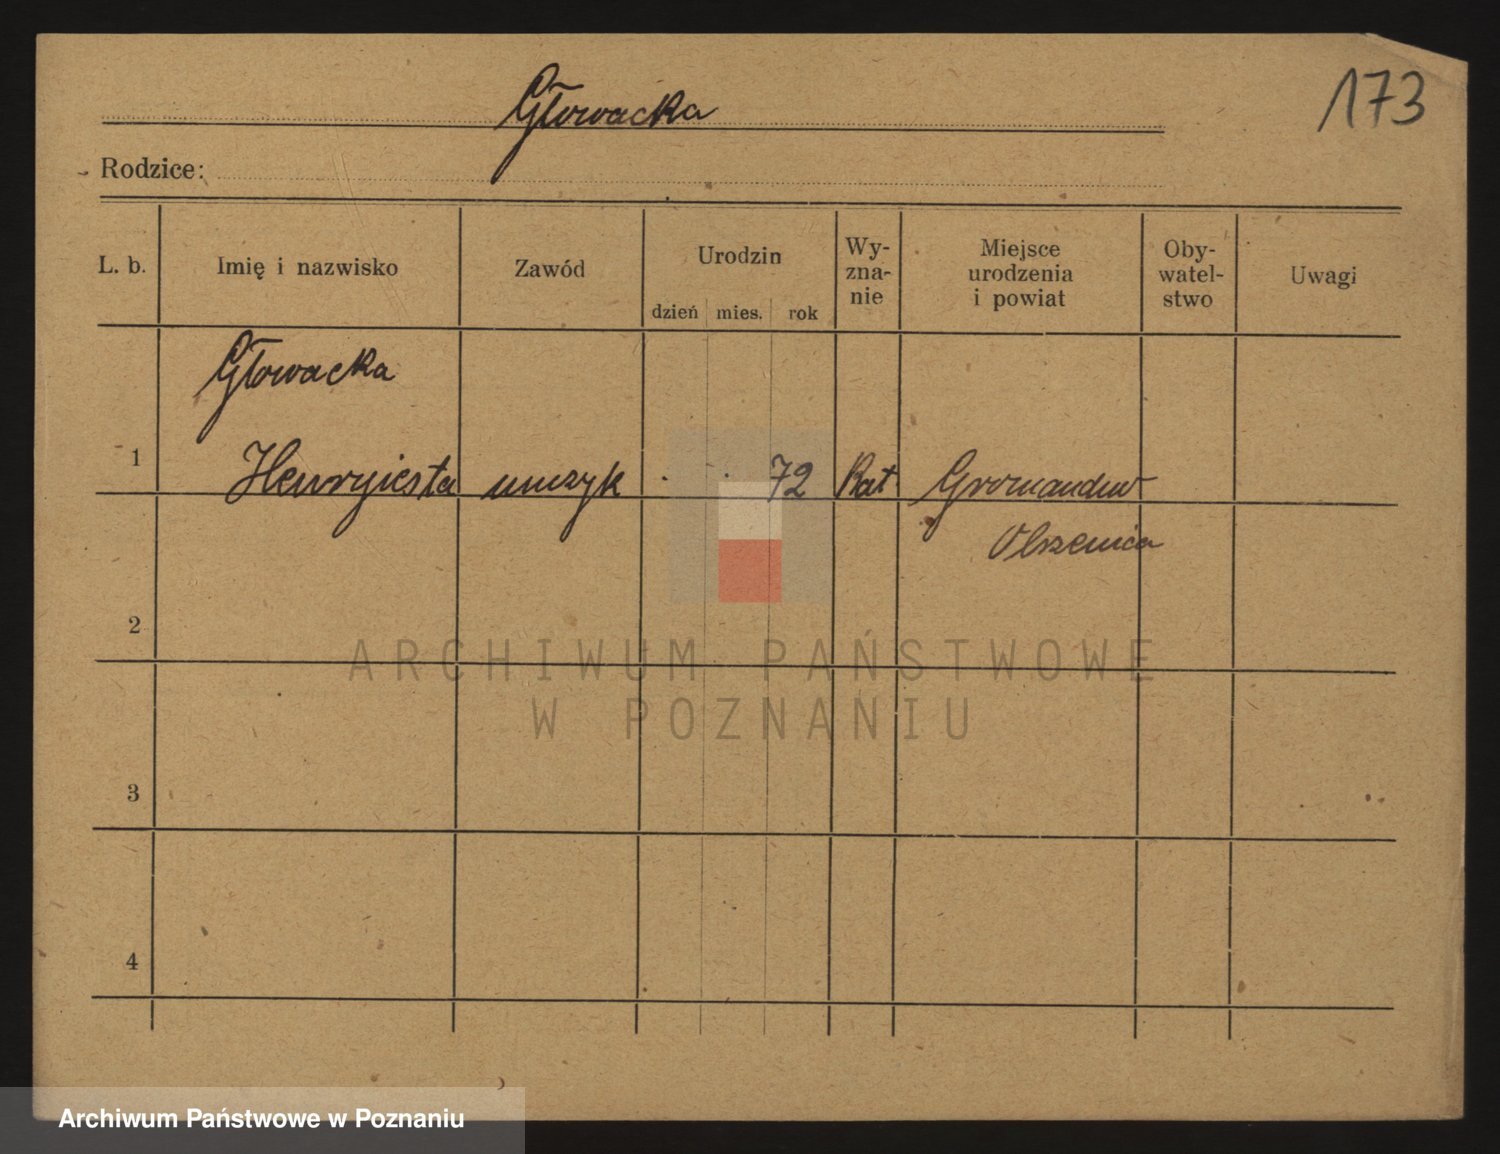 Głowacka
173
Rodzice:
L. b.
Imię i nazwisko
Zawód
Urodzin
dzień mies. rok
Wy-
zna-
nie
Miejsce
urodzenia
i powiat
Oby-
watel-
stwo
Uwagi
Głowacka
1
72
2
3
4
ARCHIWUM PAŃSTWOWE
W POZNANIU
Archiwum Państwowe w Poznaniu